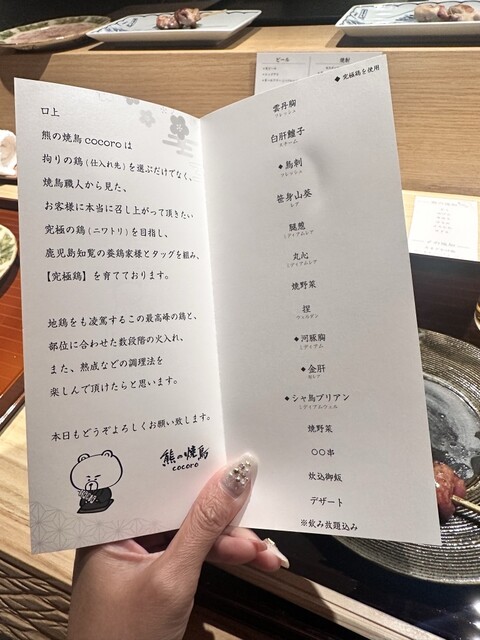 口上
熊の焼鳥 cocoro は
拘りの鶏(仕入れ先)を選ぶだけでなく、
焼鳥職人から見た、
お客様に本当に召し上がって頂きたい
究極の鶏(ニワトリ)を目指し、
鹿児島知覧の養鶏家様とタッグを組み、
【究極鶏】を育てております。
地鶏をも凌駕するこの最高峰の鶏と、
部位に合わせた数段階の火入れ、
また、熟成などの調理法を
楽しんで頂けたらと思います。
本日もどうぞよろしくお願い致します。
熊の焼鳥
cocoro
◆究極鶏を使用
雲丹胸
フレッシュ
◆鳥刺
フレッシュ
笹身山葵
レア
腿葱
ミディアムレア
丸心
ミディアムレア
焼野菜
捏
ウェルダン
◆河豚胸
ミディアム
◆金肝
◆シャ鳥ブリアン
ミディアムウェル
焼野菜
〇〇串
炊込御飯
デザート
※飲み放題込み
ビール
焼酎